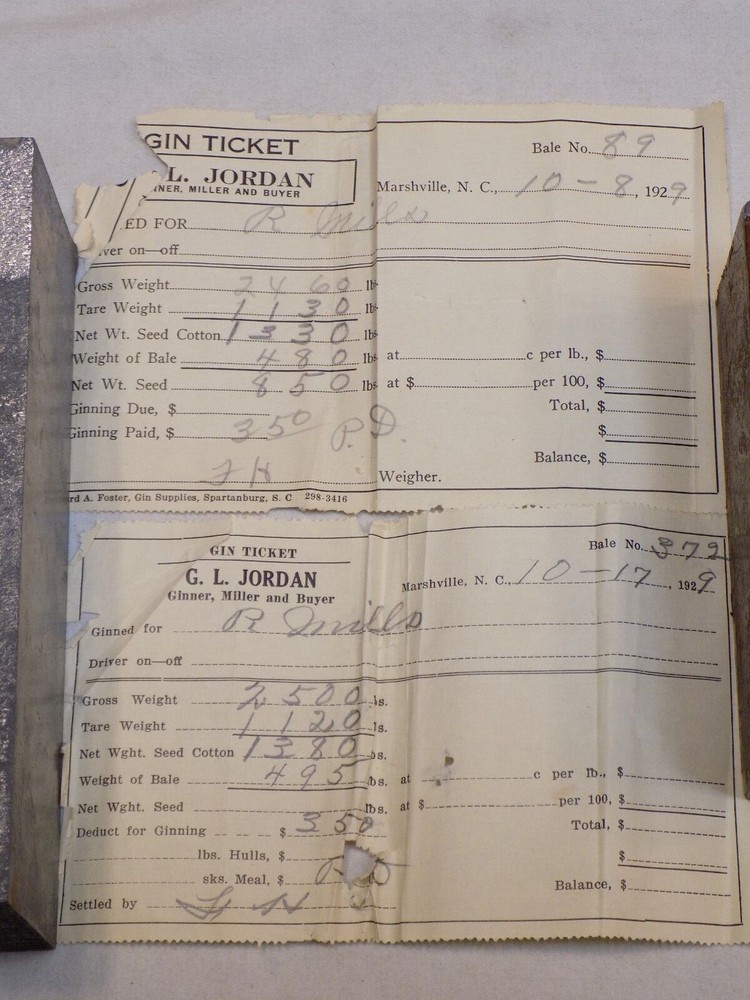 GIN TICKET
Bale No. 89
L. JORDAN
INNER, MILLER AND BUYER
Marshville, N. C., 10-8, 1929
ED FOR R Mills
ver on—off
Gross Weight 2460 lb
Tare Weight 1130 lb
Net Wt. Seed Cotton 1330 lb
Weight of Bale 480 lbs at c per lb., $
Net Wt. Seed 850 lbs at $ per 100, $
Ginning Due, $ Total, $
Ginning Paid, $ 350 P.D. $
Balance, $
Weigher.
rd A. Foster, Gin Supplies, Spartanburg, S. C 298-3416
GIN TICKET
Bale No. 372
G. L. JORDAN
Ginner, Miller and Buyer
Marshville, N. C., 10-17, 1929
Ginned for R Mills
Driver on—off
Gross Weight 2500 ls.
Tare Weight 1120 ls.
Net Wght. Seed Cotton 1380 bs.
Weight of Bale 495 lbs. at c per lb., $
Net Wght. Seed lbs. at $ per 100, $
Deduct for Ginning $ 350 Total, $
lbs. Hulls, $ $
sks. Meal, $ Balance, $
Settled by